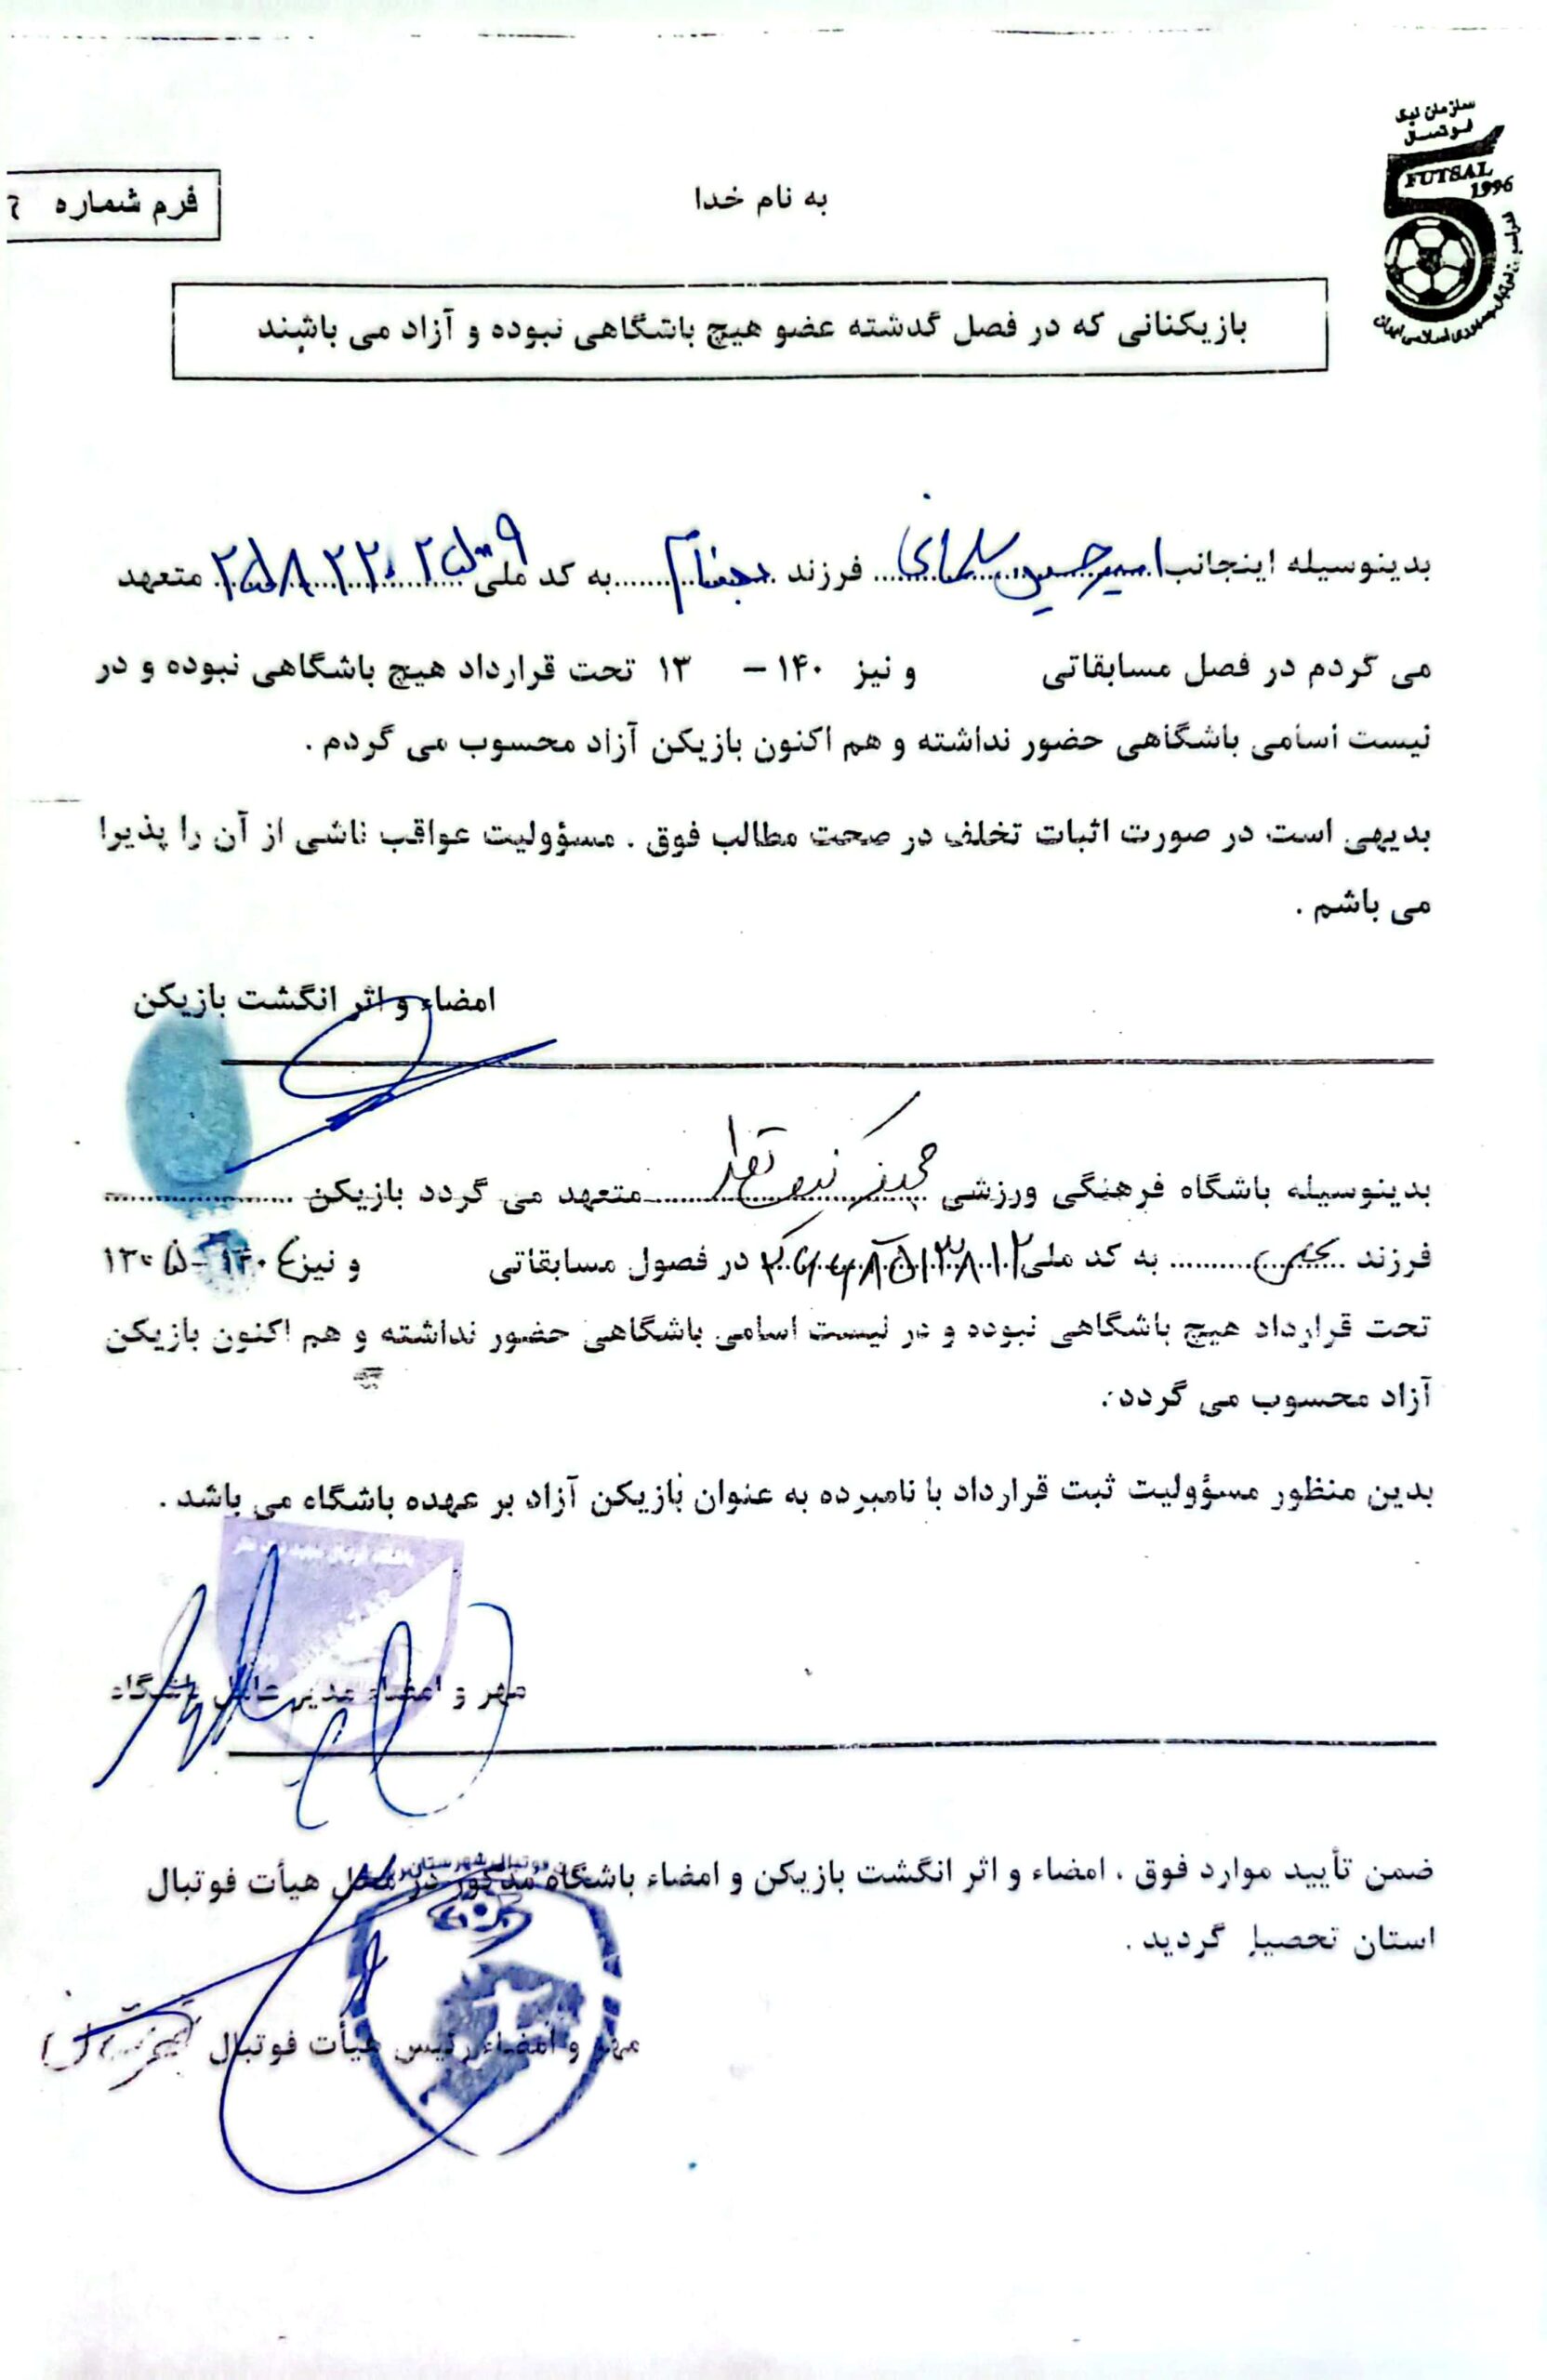 سازمان لیگ
فوتسال
FUTSAL
1996
به نام خدا
فرم شماره
بازیکنانی که در فصل گذشته عضو هیچ باشگاهی نبوده و آزاد می باشند
بدینوسیله اینجانب امیرحسین سلمانی فرزند به کد ملی متعهد
می گردم در فصل مسابقاتی و نیز ۱۴۰ - ۱۳ تحت قرارداد هیچ باشگاهی نبوده و در
لیست اسامی باشگاهی حضور نداشته و هم اکنون بازیکن آزاد محسوب می گردم .
بدیهی است در صورت اثبات تخلف در صحت مطالب فوق . مسؤولیت عواقب ناشی از آن را پذیرا
می باشم .
امضاء و اثر انگشت بازیکن
بدینوسیله باشگاه فرهنگی ورزشی متعهد می گردد بازیکن
فرزند به کد ملی در فصول مسابقاتی و نیز
تحت قرارداد هیچ باشگاهی نبوده و در لیست اسامی باشگاهی حضور نداشته و هم اکنون بازیکن
آزاد محسوب می گردد .
بدین منظور مسؤولیت ثبت قرارداد با نامبرده به عنوان بازیکن آزاد بر عهده باشگاه می باشد .
مهر و امضاء مدیر عامل باشگاه
ضمن تأیید موارد فوق . امضاء و اثر انگشت بازیکن و امضاء باشگاه مذکور در محل هیأت فوتبال
استان تحصیل گردید .
مهر و امضاء رئیس هیأت فوتبال